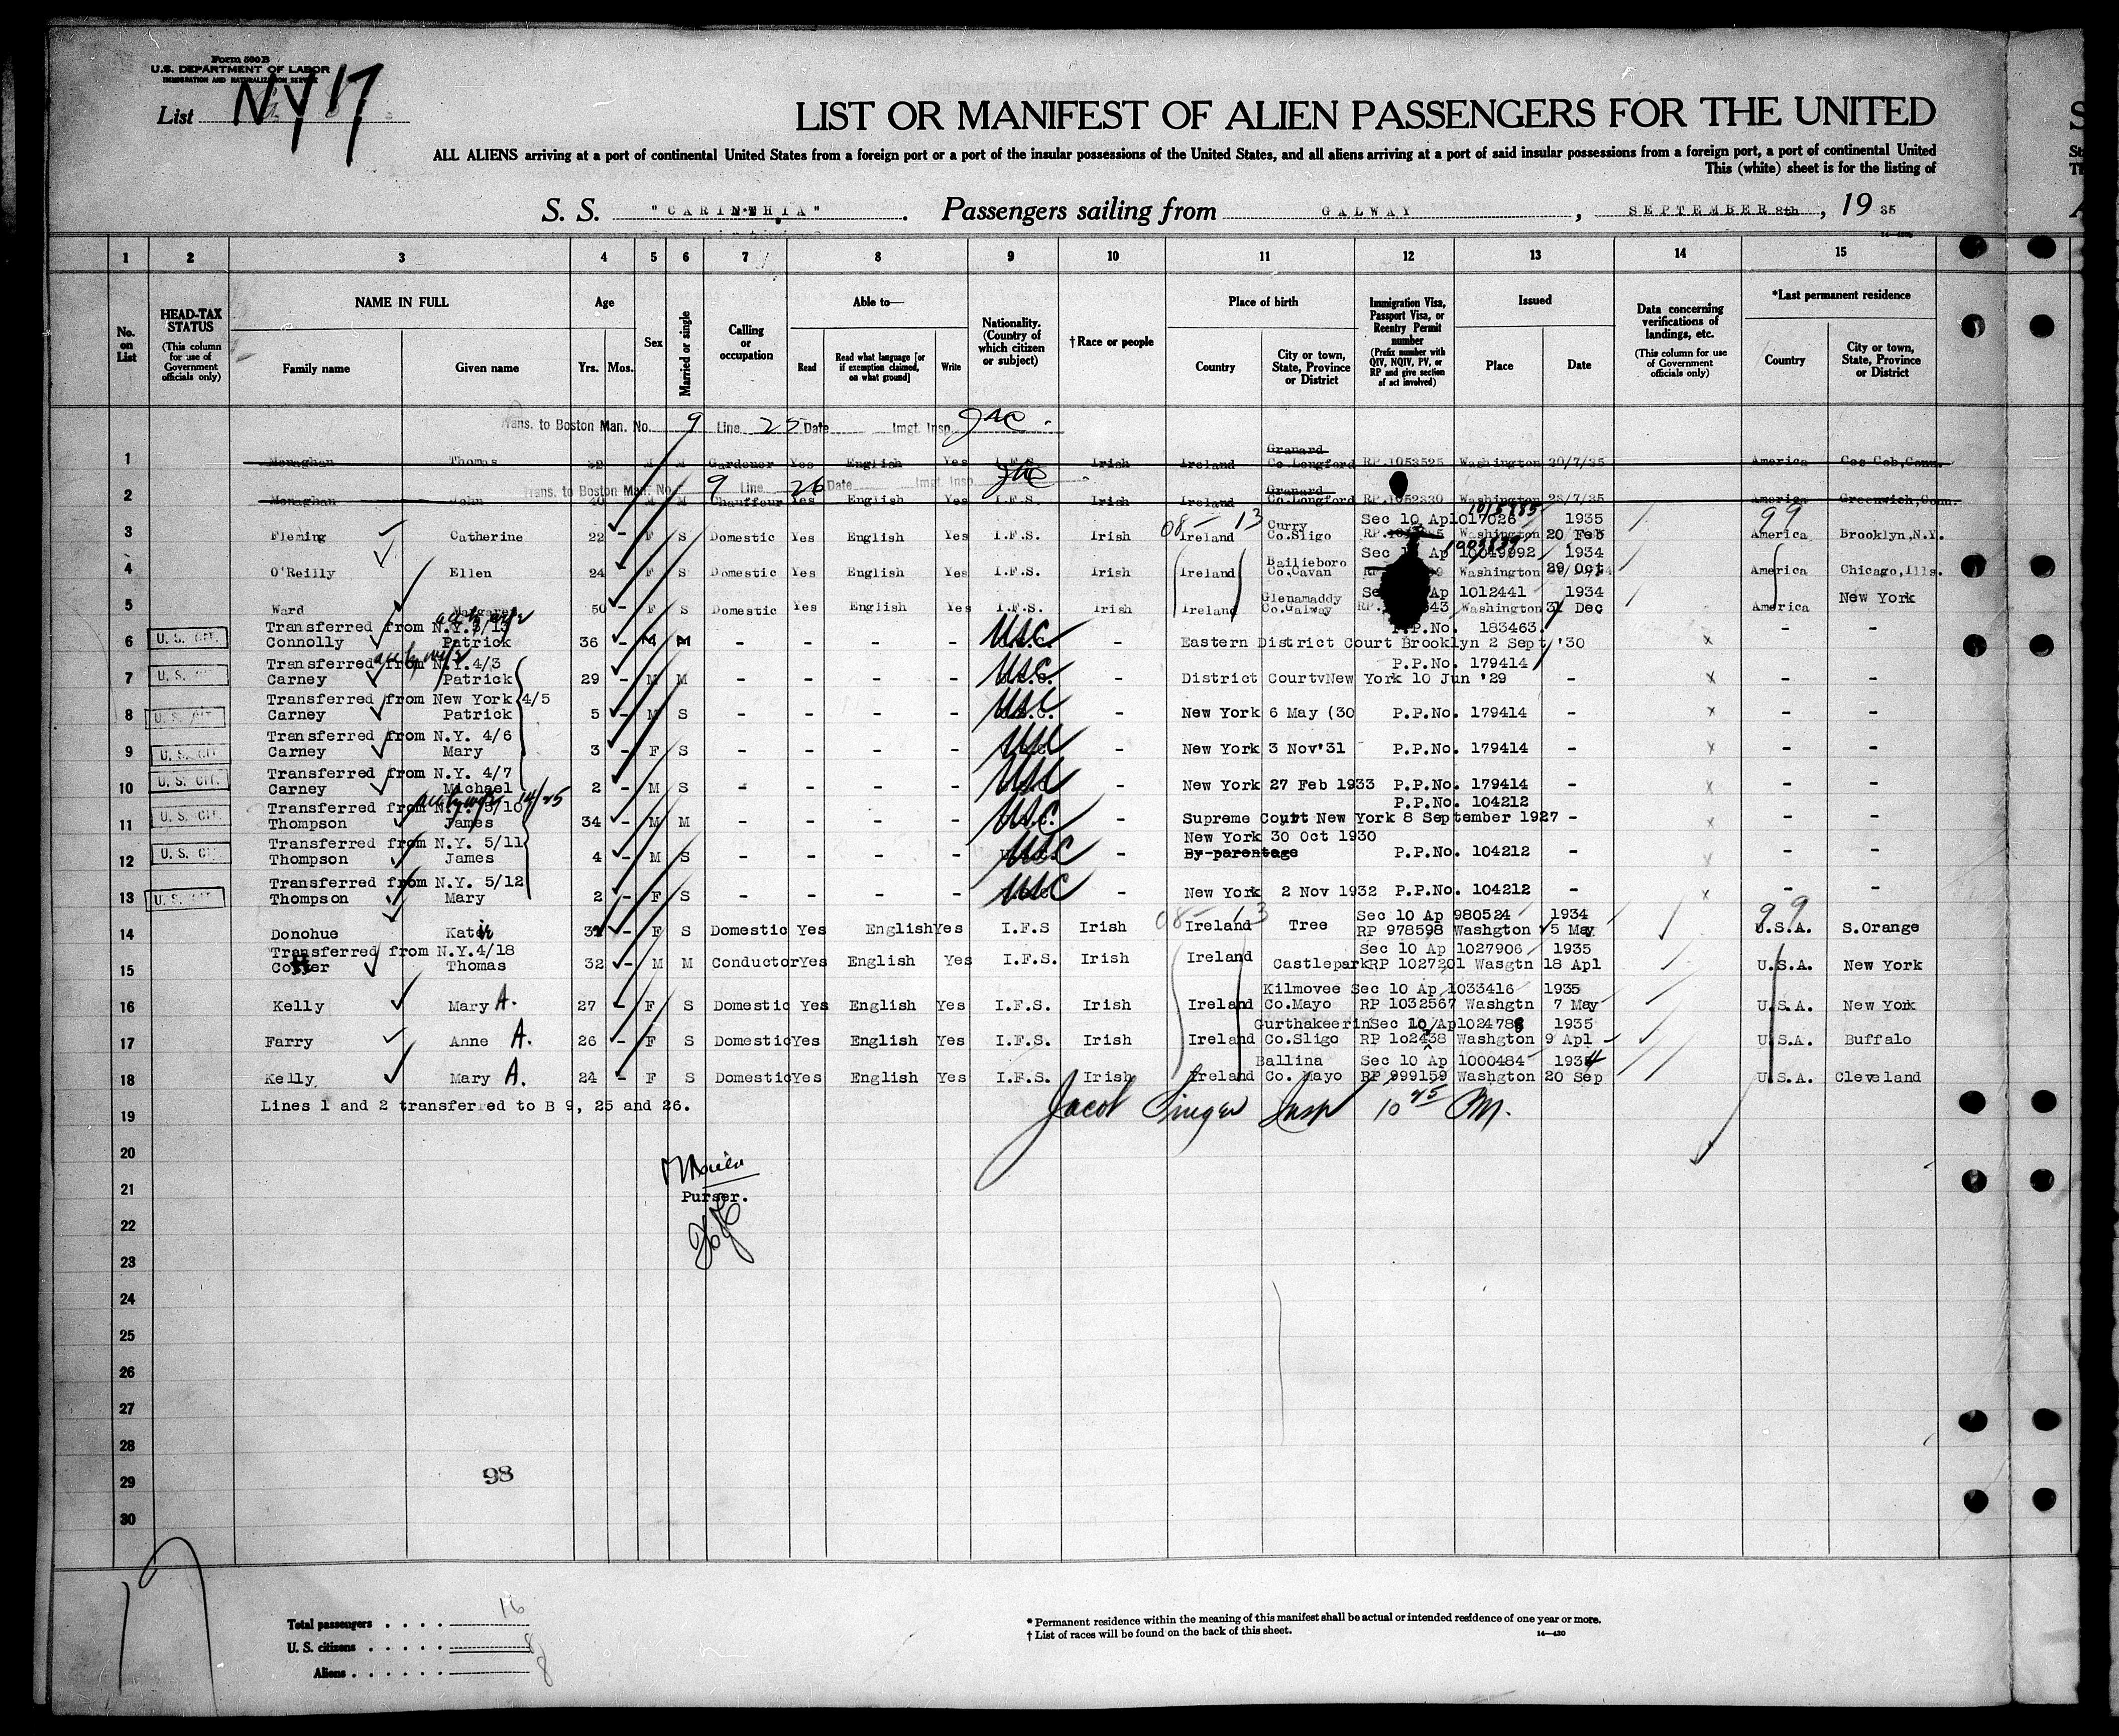 Form 500B
U.S. DEPARTMENT OF LABOR
IMMIGRATION AND NATURALIZATION SERVICE
List NY 17
LIST OR MANIFEST OF ALIEN PASSENGERS FOR THE UNITED
ALL ALIENS arriving at a port of continental United States from a foreign port or a port of the insular possessions of the United States, and all aliens arriving at a port of said insular possessions from a foreign port, a port of continental United
This (white) sheet is for the listing of
S. S. "CARINTHIA". Passengers sailing from GALWAY, SEPTEMBER 8th, 19 35
1 2 3 4 5 6 7 8 9 10 11 12 13 14 15
No. on List
HEAD-TAX STATUS (This column for use of Government officials only)
NAME IN FULL Family name Given name
Age Yrs. Mos.
Sex
Married or single
Calling or occupation
Able to— Read Read what language [or if exemption claimed, on what ground] Write
Nationality. (Country of which citizen or subject)
†Race or people
Place of birth Country City or town, State, Province or District
Immigration Visa, Passport Visa, or Reentry Permit number (Prefix number with QIV, NQIV, PV, or RP and give section of act involved)
Issued Place Date
Data concerning verifications of landings, etc. (This column for use of Government officials only)
*Last permanent residence Country City or town, State, Province or District
Trans. to Boston Man. No. 9 Line 25 Date Imgt. Insp. JAC
Granard
1 Monaghan Thomas M M Gardener Yes English Yes I.F.S. Irish Ireland Co.Longford RP.1053525 Washington 20/7/35 America Cos Cob,Conn.
Trans. to Boston Man. No. 9 Line 26 Date Imgt. Insp.
Granard
2 Monaghan John 40 M M Chauffeur Yes English Yes I.F.S. Irish Ireland Co.Longford RP.1052330 Washington 23/7/35 America Greenwich,Conn.
08- 13 Curry Sec 10 Ap1017026 1935 99
3 Fleming Catherine 22 - F S Domestic Yes English Yes I.F.S. Irish Ireland Co.Sligo Washington 20 Feb America Brooklyn,N.Y.
Bailieboro Sec Ap 10049992 1934
4 O'Reilly Ellen 24 - F S Domestic Yes English Yes I.F.S. Irish Ireland Co.Cavan Washington 29 Oct America Chicago,Ills.
Glenamaddy Ap 1012441 1934
5 Ward Margaret 50 - F S Domestic Yes English Yes I.F.S. Irish Ireland Co.Galway Washington 31 Dec America New York
Transferred from N.Y. 3/13 P.P.No. 183463
6 U. S. CIT. Connolly Patrick 36 - M M - - - - USC. - Eastern District Court Brooklyn 2 Sept '30 - -
Transferred from N.Y.4/3 P.P.No. 179414
7 U. S. CIT. Carney Patrick 29 - M M - - - - USC. - District CourtvNew York 10 Jun '29 - - -
Transferred from New York 4/5
8 U. S. CIT. Carney Patrick 5 - M S - - - - USC. - New York 6 May (30 P.P.No. 179414 - - -
Transferred from N.Y. 4/6
9 U. S. CIT Carney Mary 3 - F S - - - - USC - New York 3 Nov'31 P.P.No. 179414 - - -
Transferred from N.Y. 4/7
10 U. S. CIT. Carney Michael 2 - M S - - - - USC - New York 27 Feb 1933 P.P.No. 179414 - - -
Transferred from N.Y. 3/10 P.P.No. 104212
11 U. S. CIT. Thompson James 34 - M M - - - - USC. - Supreme Court New York 8 September 1927 - - -
Transferred from N.Y. 5/11 New York 30 Oct 1930
12 U. S. CIT Thompson James 4 - M S - - - - USC - By parentage P.P.No. 104212 - - -
Transferred from N.Y. 5/12
13 U. S. CIT. Thompson Mary 2 - F S - - - - USC - New York 2 Nov 1932 P.P.No. 104212 - - -
08- 13 Sec 10 Ap 980524 1934 99
14 Donohue Kate - F S Domestic Yes English Yes I.F.S Irish Ireland Tree RP 978598 Washgton 5 May U.S.A. S.Orange
Transferred from N.Y.4/18 Sec 10 Ap 1027906 1935
15 Cotter Thomas 32 - M M Conductor Yes English Yes I.F.S. Irish Ireland Castlepark RP 1027201 Wasgtn 18 Apl U.S.A. New York
Kilmovee Sec 10 Ap 1033416 1935
16 Kelly Mary A. 27 - F S Domestic Yes English Yes I.F.S. Irish Ireland Co.Mayo RP 1032567 Washgtn 7 May U.S.A. New York
Gurthakeerin Sec 10 Ap1024788 1935
17 Farry Anne A. 26 - F S Domestic Yes English Yes I.F.S. Irish Ireland Co.Sligo RP 1o2438 Washgton 9 Apl U.S.A. Buffalo
Ballina Sec 10 Ap 1000484 1934
18 Kelly Mary A. 24 - F S Domestic Yes English Yes I.F.S. Irish Ireland Co. Mayo RP 999159 Washgton 20 Sep U.S.A. Cleveland
19 Lines 1 and 2 transferred to B 9, 25 and 26. Jacob Singer Insp 10 25 PM.
20
21 Purser.
22
23
24
25
26
27
28
29 98
30
Total passengers . . . . 16
U. S. citizens . . . . . 8
Aliens . . . . . . 8
* Permanent residence within the meaning of this manifest shall be actual or intended residence of one year or more.
† List of races will be found on the back of this sheet.
14—430